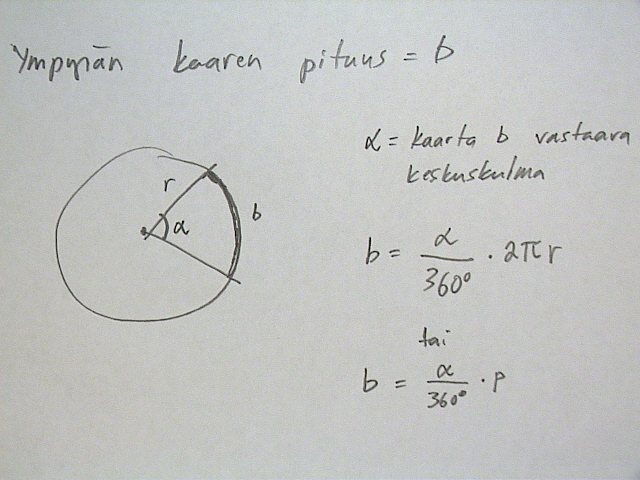 Ympyrän kaaren pituus = b
α = kaarta b vastaava
keskuskulma
r
α
b
b = α/360° · 2πr
tai
b = α/360° · p